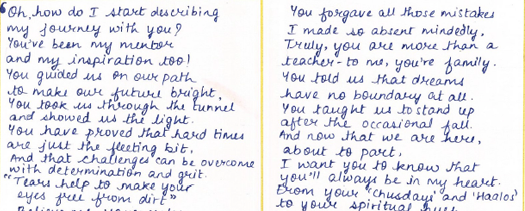 ‘Oh, how do I start describing
my journey with you?
You've been my mentor
and my inspiration too!
You guided us on our path
to make our future bright,
You took us through the tunnel
and showed us the light.
You have proved that hard times
are just the fleeting bit,
And that challenges can be overcome
with determination and grit.
"Tears help to make your
eyes free from dirt"
You forgave all those mistakes
I made so absent mindedly,
Truly, you are more than a
teacher - to me, you're family.
You told us that dreams
have no boundary at all.
You taught us to stand up
after the occasional fall.
And now that we are here,
about to part,
I want you to know that
you'll always be in my heart.
From your 'Chusdayi' and 'Haalos'
to your spiritual